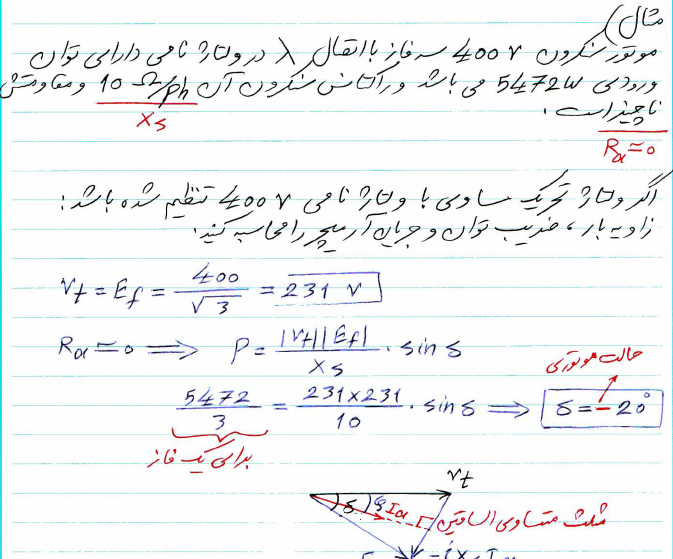 مثال)
موتور سنکرون 400 V سه فاز با اتصال λ در ولتاژ نامی دارای توان
ورودی 5472 W می باشد و رآکتانس سنکرون آن 10 Ω/ph و مقاومتش
Xs
ناچیز است.
Ra ≃ 0
اگر ولتاژ تحریک مساوی با ولتاژ نامی 400 V تنظیم شده باشد:
زاویه بار، ضریب توان و جریان آرمیچر را محاسبه کنید.
Vt = Ef = 400/√3 = 231 V
Ra ≃ 0 ⟹ P = |Vt||Ef|/Xs · sin δ
حالت موتوری
5472/3 = 231×231/10 · sin δ ⟹ δ = -20°
برای یک فاز
Vt
δ φ Ia
مثلث متساوی الساقین